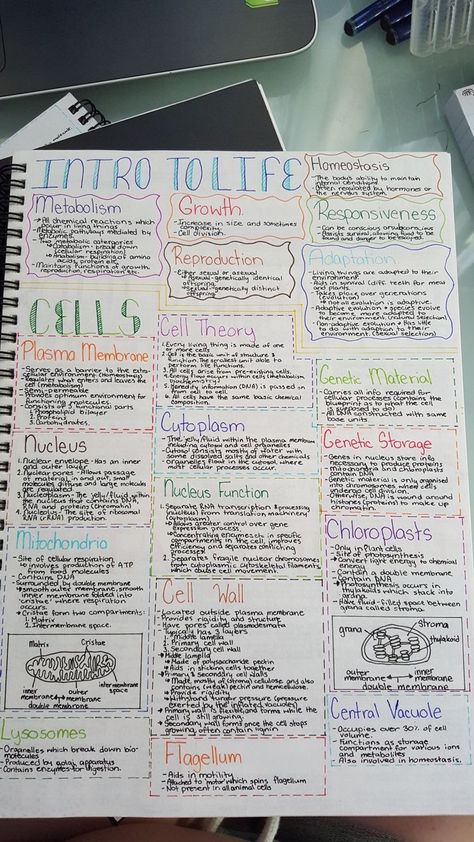 INTRO TO LIFE
Homeostasis
- The body's ability to maintain
internal conditions
- Often regulated by hormones or
the nervous system.
Metabolism
→ All chemical reactions which
occur in living things
- Metabolic pathways mediated by
enzymes.
- Two metabolic catergories
→ Catabolism - break down
(cellular respiration)
→ Anabolism - building of amino
acids, protein etc.
- Maintains functions of growth
reproduction, respiration etc.
Growth
- Increase in size and sometimes
complexity.
- Cell division.
Responsiveness
- Can be conscious or subconscious
- Assists survival, allowing food to be
found and danger to be escaped
Reproduction
- Either sexual or asexual
→ Asexual = genetically identical
offspring.
→ Sexual = genetically distinct
offspring
Adaptation
- Living things are adapted to their
environment.
- Aids in survival (diff. teeth for meat
and plants.
- Takes place over generations
(evolution)
→ Not all evolution is adaptive.
- Adaptive evolution = species evolve
to become more adapted to
their environment (natural selection)
- Non-adaptive evolution = has little
to do with adaption to their
environment. (sexual selection)
CELLS
Plasma Membrane
- Serves as a barrier to the extra-
cellular environment (homeostasis)
- Regulates what enters and leaves the
cell (metabolism)
- Semi-permeable
- Provides optimum environment for
functioning molecules.
- Consists of 3 functional parts
1. Phospholipid Bilayer
2. Proteins
3. Carbohydrates.
Cell Theory
1. Every living thing is made of one
or more cells
2. Cell is the basic unit of structure &
function. The smallest unit able to
perform life functions.
3. All cells arise from pre-existing cells.
4. Energy flow occurs within cells (metabolism
& biochemistry)
5. Heredity information (DNA) is passed on
from cell to cell
6. All cells have the same basic chemical
composition.
Genetic Material
- Carries all info required for
cellular processes (contains the
blueprint as to what the cell
is supposed to do)
- All DNA constructed with same
base units
Nucleus
1. Nuclear envelope - Has an inner
and outer layer
2. Nuclear pores - Allows passage
of material in and out, small
molecules diffuse and large molecules
are regulated
3. Nucleoplasm - The jelly/fluid within
the nucleus that contains DNA,
RNA and proteins (chromatin)
4. Nucleolus - The site of ribosomal
RNA (rRNA) production.
Cytoplasm
- The jelly/fluid within the plasma membrane
including cytosol and cell organelles
- Cytosol consists mostly of water with
some dissolved salts and other chemicals
- Organelles float in the cytosol where
most cellular processes occur.
Genetic Storage
- Genes in nucleus store info
necessary to produce proteins
- Mitochondria and chloroplasts
contain DNA
- Genetic material is only organised
into chromosomes where cells
undergo cell division.
- Otherwise, DNA is wound around
histones (proteins) to make up
chromatin.
Nucleus Function
1. Separate RNA transcription & processing
(nucleus) from translation machinery
(cytoplasm)
→ Allows greater control over gene
expression process.
→ Concentrating enzymes in specific
compartments in the cell, improves
efficiency and separates conflicting
processes
2. Separates fragile nuclear chromosomes
from cytoplasmic cytoskeletal filaments
which cause movement.
Mitochondria
- Site of cellular respiration
→ involves production of ATP
from food molecules
- Contains DNA
- Surrounded by double membrane
→ smooth outer membrane, smooth
inner membrane folded into
'cristae' where respiration
occurs
- Cristae form two compartments:
1. Matrix
2. Intermembrane space.
Matrix
Cristae
inner
membrane
outer
membrane
intermembrane
space
double membrane
Chloroplasts
- Only in Plant cells
- Site of photosynthesis
→ Convert light energy to chemical
energy
- Contain a double membrane.
- Contain DNA
- Photosynthesis occurs in
thylakoids which stack into
grana.
- Have fluid-filled space between
grana called stroma.
grana
stroma
thylakoid
outer
membrane
inner
membrane
double membrane
Cell Wall
- Located outside plasma membrane
- Provides rigidity and structure
- Have 'pores' called plasmodesmata
- Typically has 3 layers
1. Middle lamella
2. Primary cell wall
3. Secondary cell wall
→ Middle lamella
→ Made of polysaccharide pectin
→ Aids in sticking cells together
→ Primary & Secondary cell walls
→ Made mostly of cellulose and also
contains (weak) pectin and hemicellulose.
→ Provide rigidity
→ Withstand turgor pressure (pressure
exerted by the inflated vacuole)
→ Primary wall is flexible and forms while the
cell is still growing.
→ Secondary wall forms once the cell stops
growing, often contain lignin
Central Vacuole
- Occupies over 30% of cell
volume.
- Functions as storage
compartment for various ions
and metabolites
- Also involved in homeostasis.
Lysosomes
- Organelles which break down bio-
molecules
- Produced by golgi apparatus
- Contains enzymes for digestion.
Flagellum
- Aids in motility
- Attached to 'motor' which spins flagellum
- Not present in all animal cells